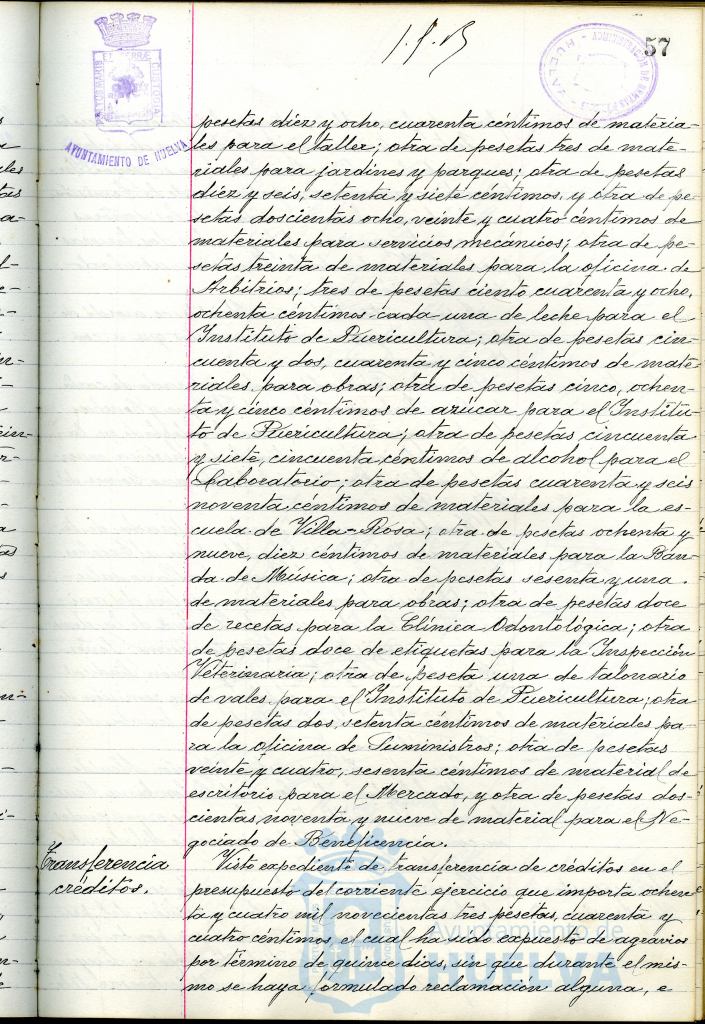 57
AYUNTAMIENTO DE HUELVA
pesetas diez y ocho, cuarenta céntimos de materia-
les para el taller; otra de pesetas tres de mate-
riales para jardines y parques; otra de pesetas
diez y seis, setenta y siete céntimos, y otra de pe-
setas doscientas ocho, veinte y cuatro céntimos de
materiales para servicios mecánicos; otra de pe-
setas treinta de materiales para la oficina de
Arbitrios; tres de pesetas ciento cuarenta y ocho,
ochenta céntimos cada una de leche para el
Instituto de Puericultura; otra de pesetas cin-
cuenta y dos, cuarenta y cinco céntimos de mate-
riales para obras; otra de pesetas cinco, ochen-
ta y cinco céntimos de azúcar para el Institu-
to de Puericultura; otra de pesetas cincuenta
y siete, cincuenta céntimos de alcohol para el
Laboratorio; otra de pesetas cuarenta y seis
noventa céntimos de materiales para la es-
cuela de Villa-Rosa; otra de pesetas ochenta y
nueve, diez céntimos de materiales para la Ban-
da de Música; otra de pesetas sesenta y una
de materiales para obras; otra de pesetas doce
de recetas para la Clínica Odontológica; otra
de pesetas doce de etiquetas para la Inspección
Veterinaria; otra de peseta una de talonario
de vales, para el Instituto de Puericultura; otra
de pesetas dos, setenta céntimos de materiales pa-
ra la oficina de Suministros; otra de pesetas
veinte y cuatro, sesenta céntimos de material de
escritorio para el Mercado, y otra de pesetas dos-
cientas noventa y nueve de material para el Ne-
gociado de Beneficencia.
Transferencia
créditos.
Visto expediente de transferencia de créditos en el
presupuesto del corriente ejercicio que importa ochen-
ta y cuatro mil novecientas tres pesetas, cuarenta y
cuatro céntimos, el cual ha sido expuesto de agravios
por término de quince días, sin que durante el mis-
mo se haya formulado reclamación alguna, e
Ayuntamiento de
HUELVA